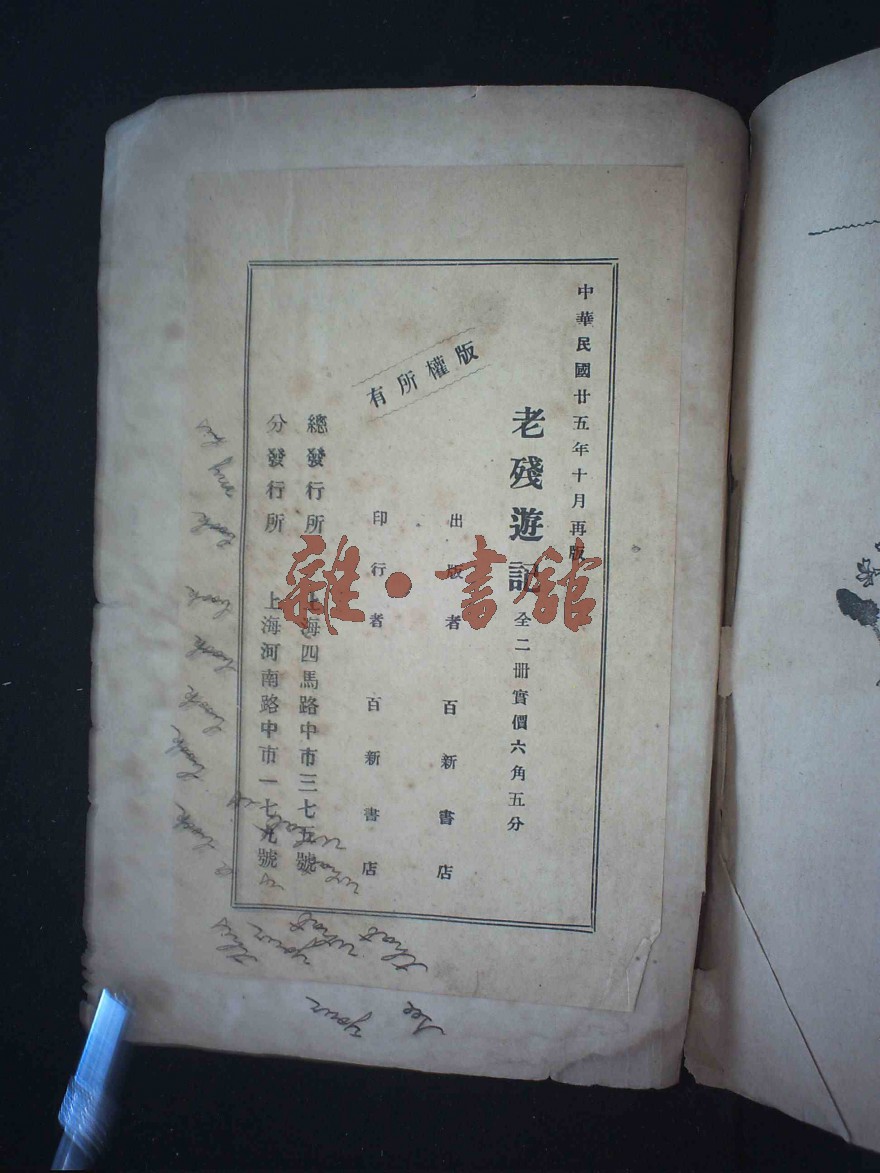 中華民國廿五年十月再版
老殘遊記 全二册實價六角五分
出版者 百新書店
印行者 百新書店
版權所有
總發行所 上海四馬路中市三七五號
分發行所 上海河南路中市一七九號
雜·書館
my his
book
look
book
book
book
book
this
your
what
that
what
what
is
see
your